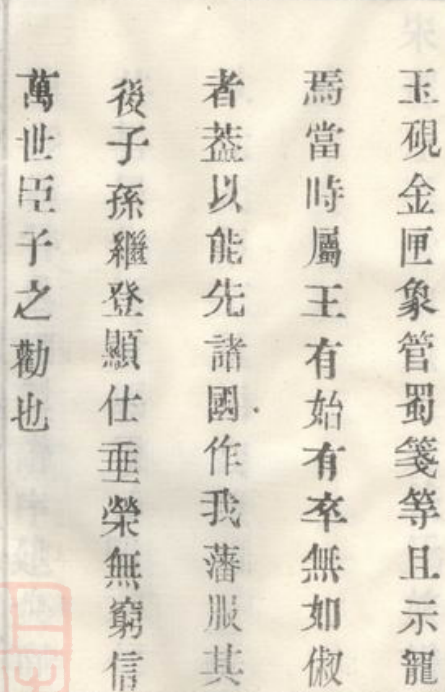 玉硯金匣象管蜀箋等且示寵
焉當時屬王有始有卒無如俶
者葢以能先諸國作我藩服其
後子孫繼登顯仕垂榮無窮信
萬世臣子之勸也